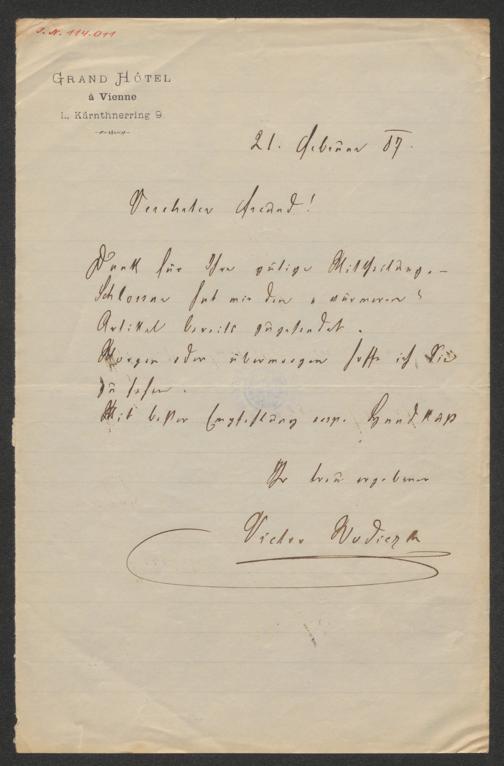 J. N. 114.011
GRAND HÔTEL
à Vienne
I., Kärnthnerring 9.
21. Februar 87.
Verehrter Freund!
Dank für Ihre gütige Mittheilung. –
Schlossar hat mir den „wärmeren“
Artikel bereits zugesendet.
Morgen oder übermorgen hoffe ich Sie
zu sehen.
Mit bester Empfehlung resp. Handkuß
Ihr treu ergebener
Victor Wodiczka